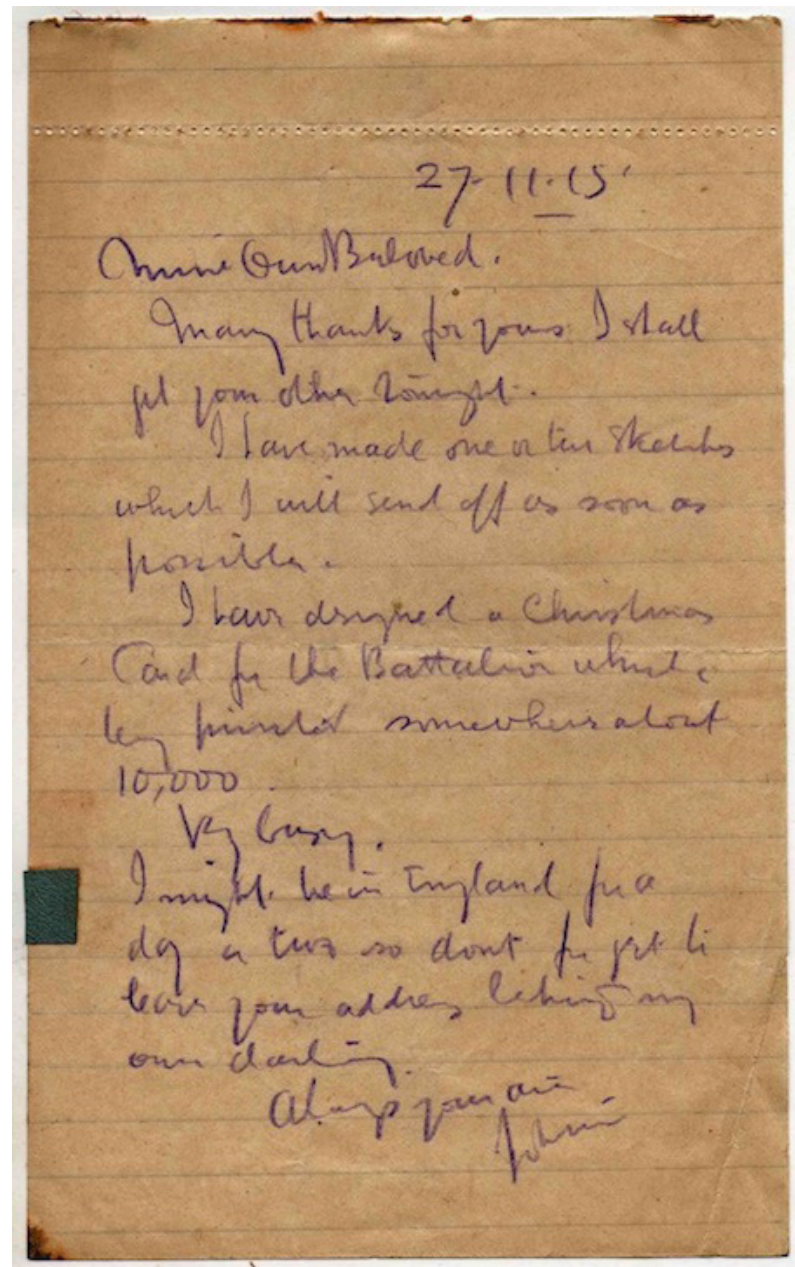 27-11-15
Mine Own Beloved.
Many thanks for yours I shall
get your other tonight.
I have made one or two sketches
which I will send off as soon as
possible.
I have designed a Christmas
Card for the Battalion which is
being printed somewhere about
10,000.
Vy busy.
I might be in England for a
day or two so dont forget to
leave your address behind my
own darling.
Always your own